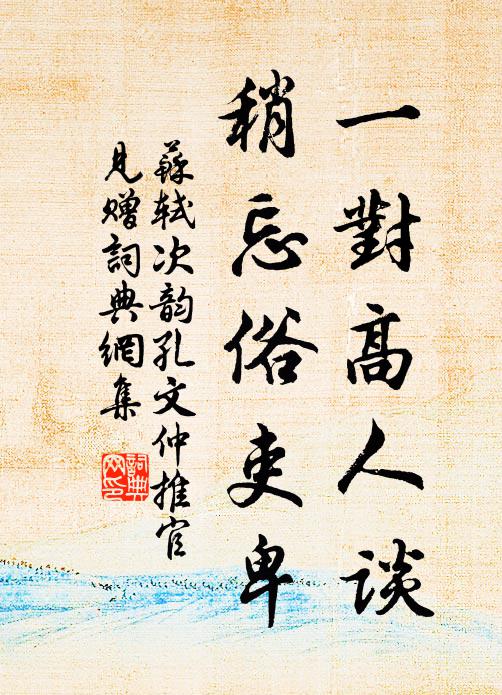 一對高人談
稍忘俗吏卑
蘇軾次韵孔文仲推官
見贈詞典網集
詞典
网印